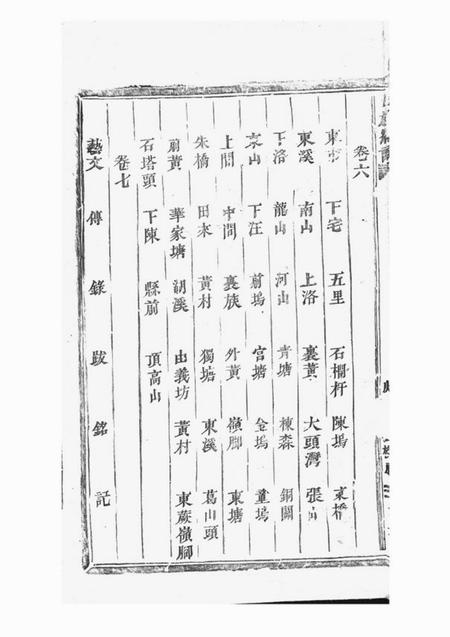 卷六
東 下宅 五里 石桐杆 陳塢 東橋
東溪 南山 上洛 裏黃 大頭灣 張
下洛 龍山 河山 青塘 棟森 銅關
東山 下汪 前塢 宮塘 金塢 童塢
上間 中間 裏族 外黃 嶺腳 東塘
朱橋 田來 黃村 獨塘 東溪 葛山頭
前黃 華家塘 胡溪 由義坊 黃村 東蕨嶺腳
石塔頭 下陳 縣前 頂高山
卷七
藝文 傳 錄 跋 銘 記